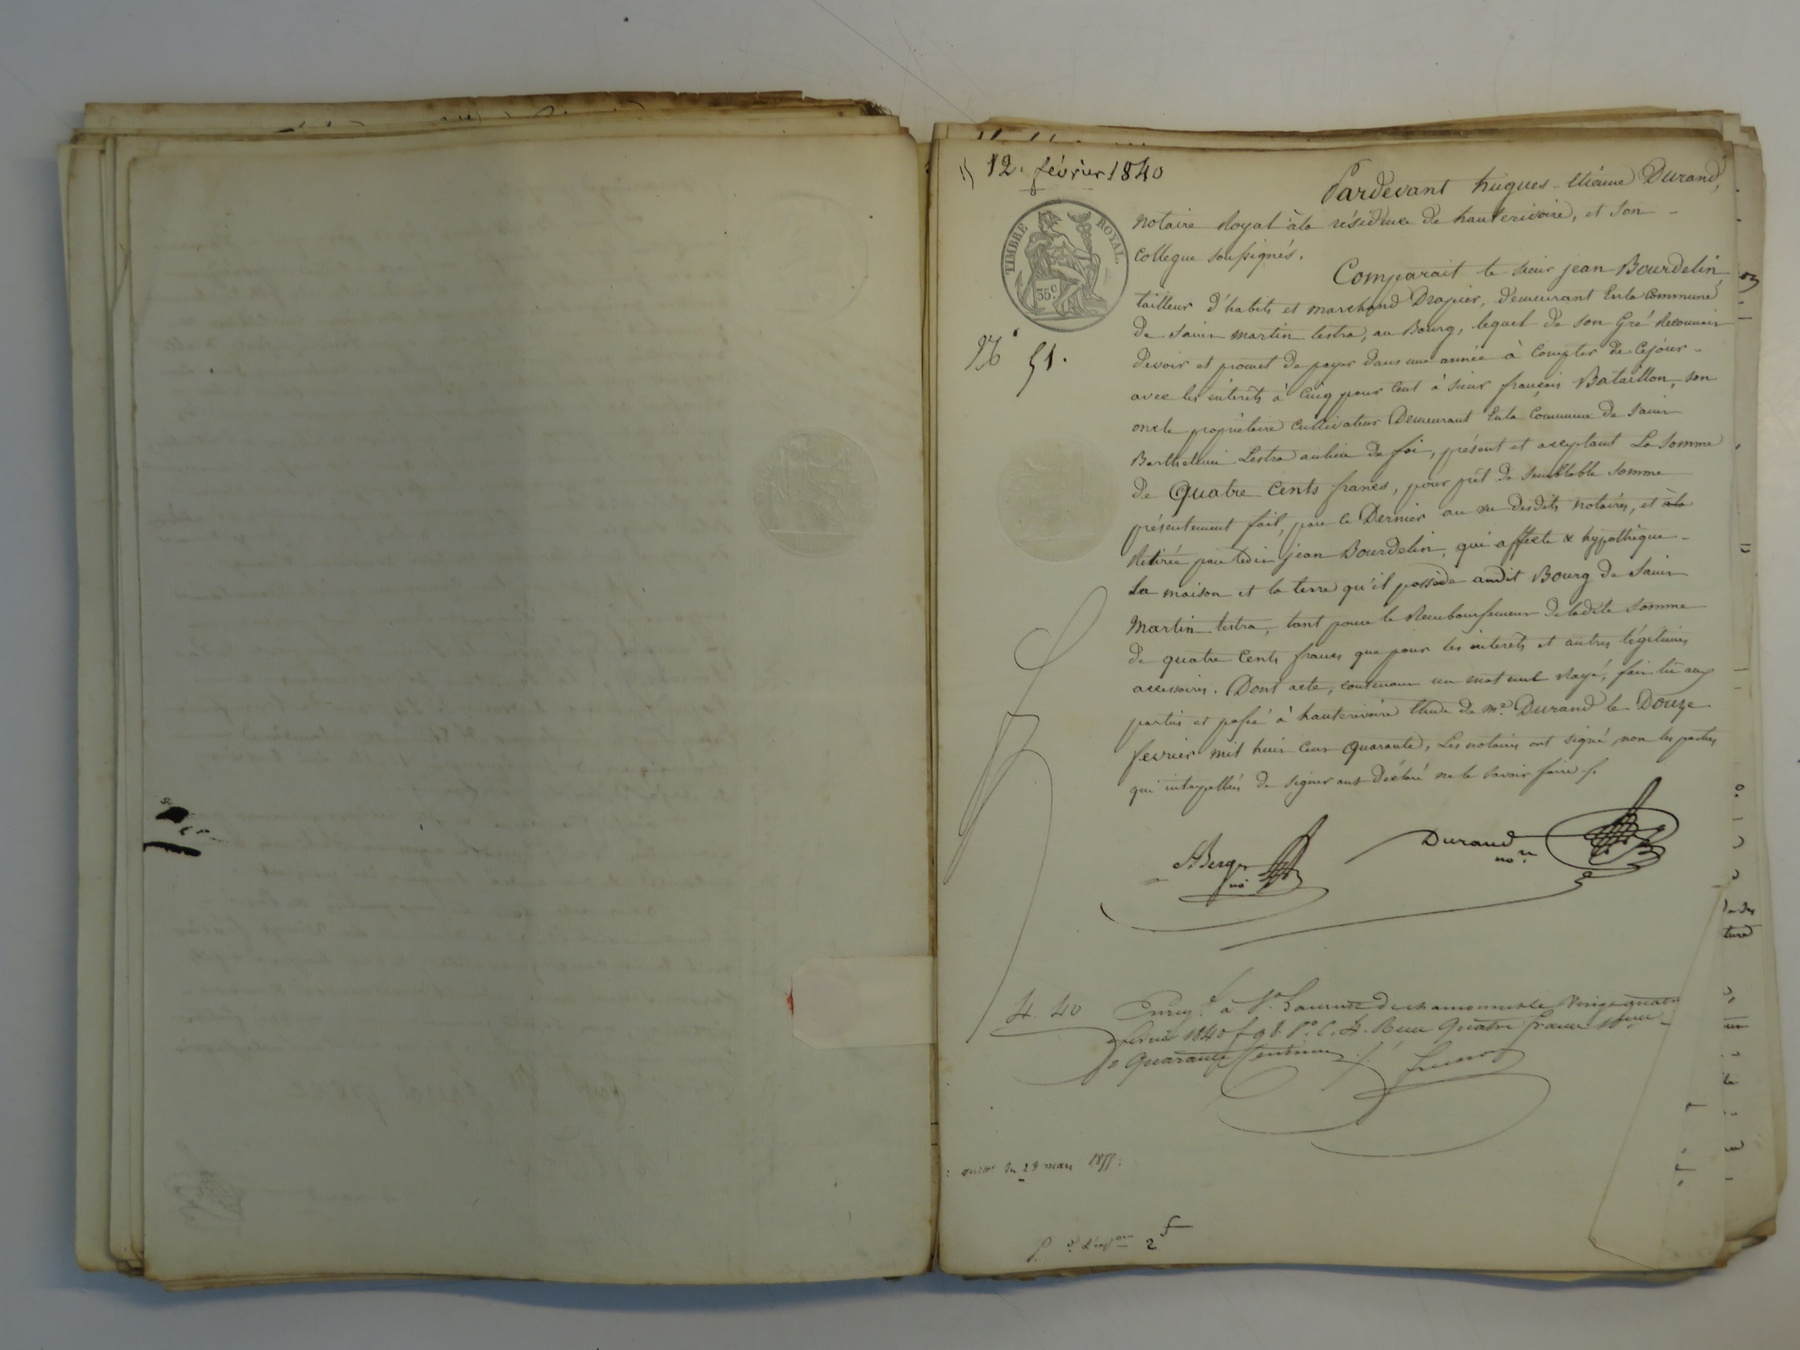 12. février 1840
Pardevant hugues-étienne Durand,
notaire Royal à la résidence de hauterivoire, et son
collegue soussignés.
TIMBRE ROYAL.
35 c.
Comparait le sieur jean Bourdelin
tailleur d'habits et marchand Drapier, demeurant En la commune
de Saint martin lestra, au Bourg, lequel de son Gré Reconnait
51.
devoir et promet de payer dans une année à compter de cejour
avec les intérêts à Cinq pour Cent à sieur françois Bataillon, son
oncle propriétaire cultivateur Demeurant En la Commune de Saint
Barthelemi Lestra au lieu de foi, présent et acceptant La Somme
de Quatre Cents francs, pour prêt de semblable Somme
présentement fait, par ce Dernier au vu desdits notaires, et à la
Retirée par ledit jean Bourdelin, qui affecte & hypothèque
La maison et la terre qu'il possède audit Bourg de Saint
Martin lestra, tant pour le Remboursement de ladite Somme
de quatre Cents francs que pour les intérêts et autres légitimes
accessoires. Dont acte, contenant un mot nul Rayé, fait lu aux
parties et passé à hauterivoire étude de me. Durand le Douze
fevrier mil huit Cent Quarante, Les notaires ont signé non les parties
qui interpellés de signer ont déclaré ne le savoir faire ./.
Berger no
Durand no re
4. 40
Enreg. é à St. Laurent de chamousset le vingt quatre
fevrier 1840 f 98. Ro. C. 4. Reçu Quatre francs
& Quarante Centimes ./.
du 23 mars
2 f